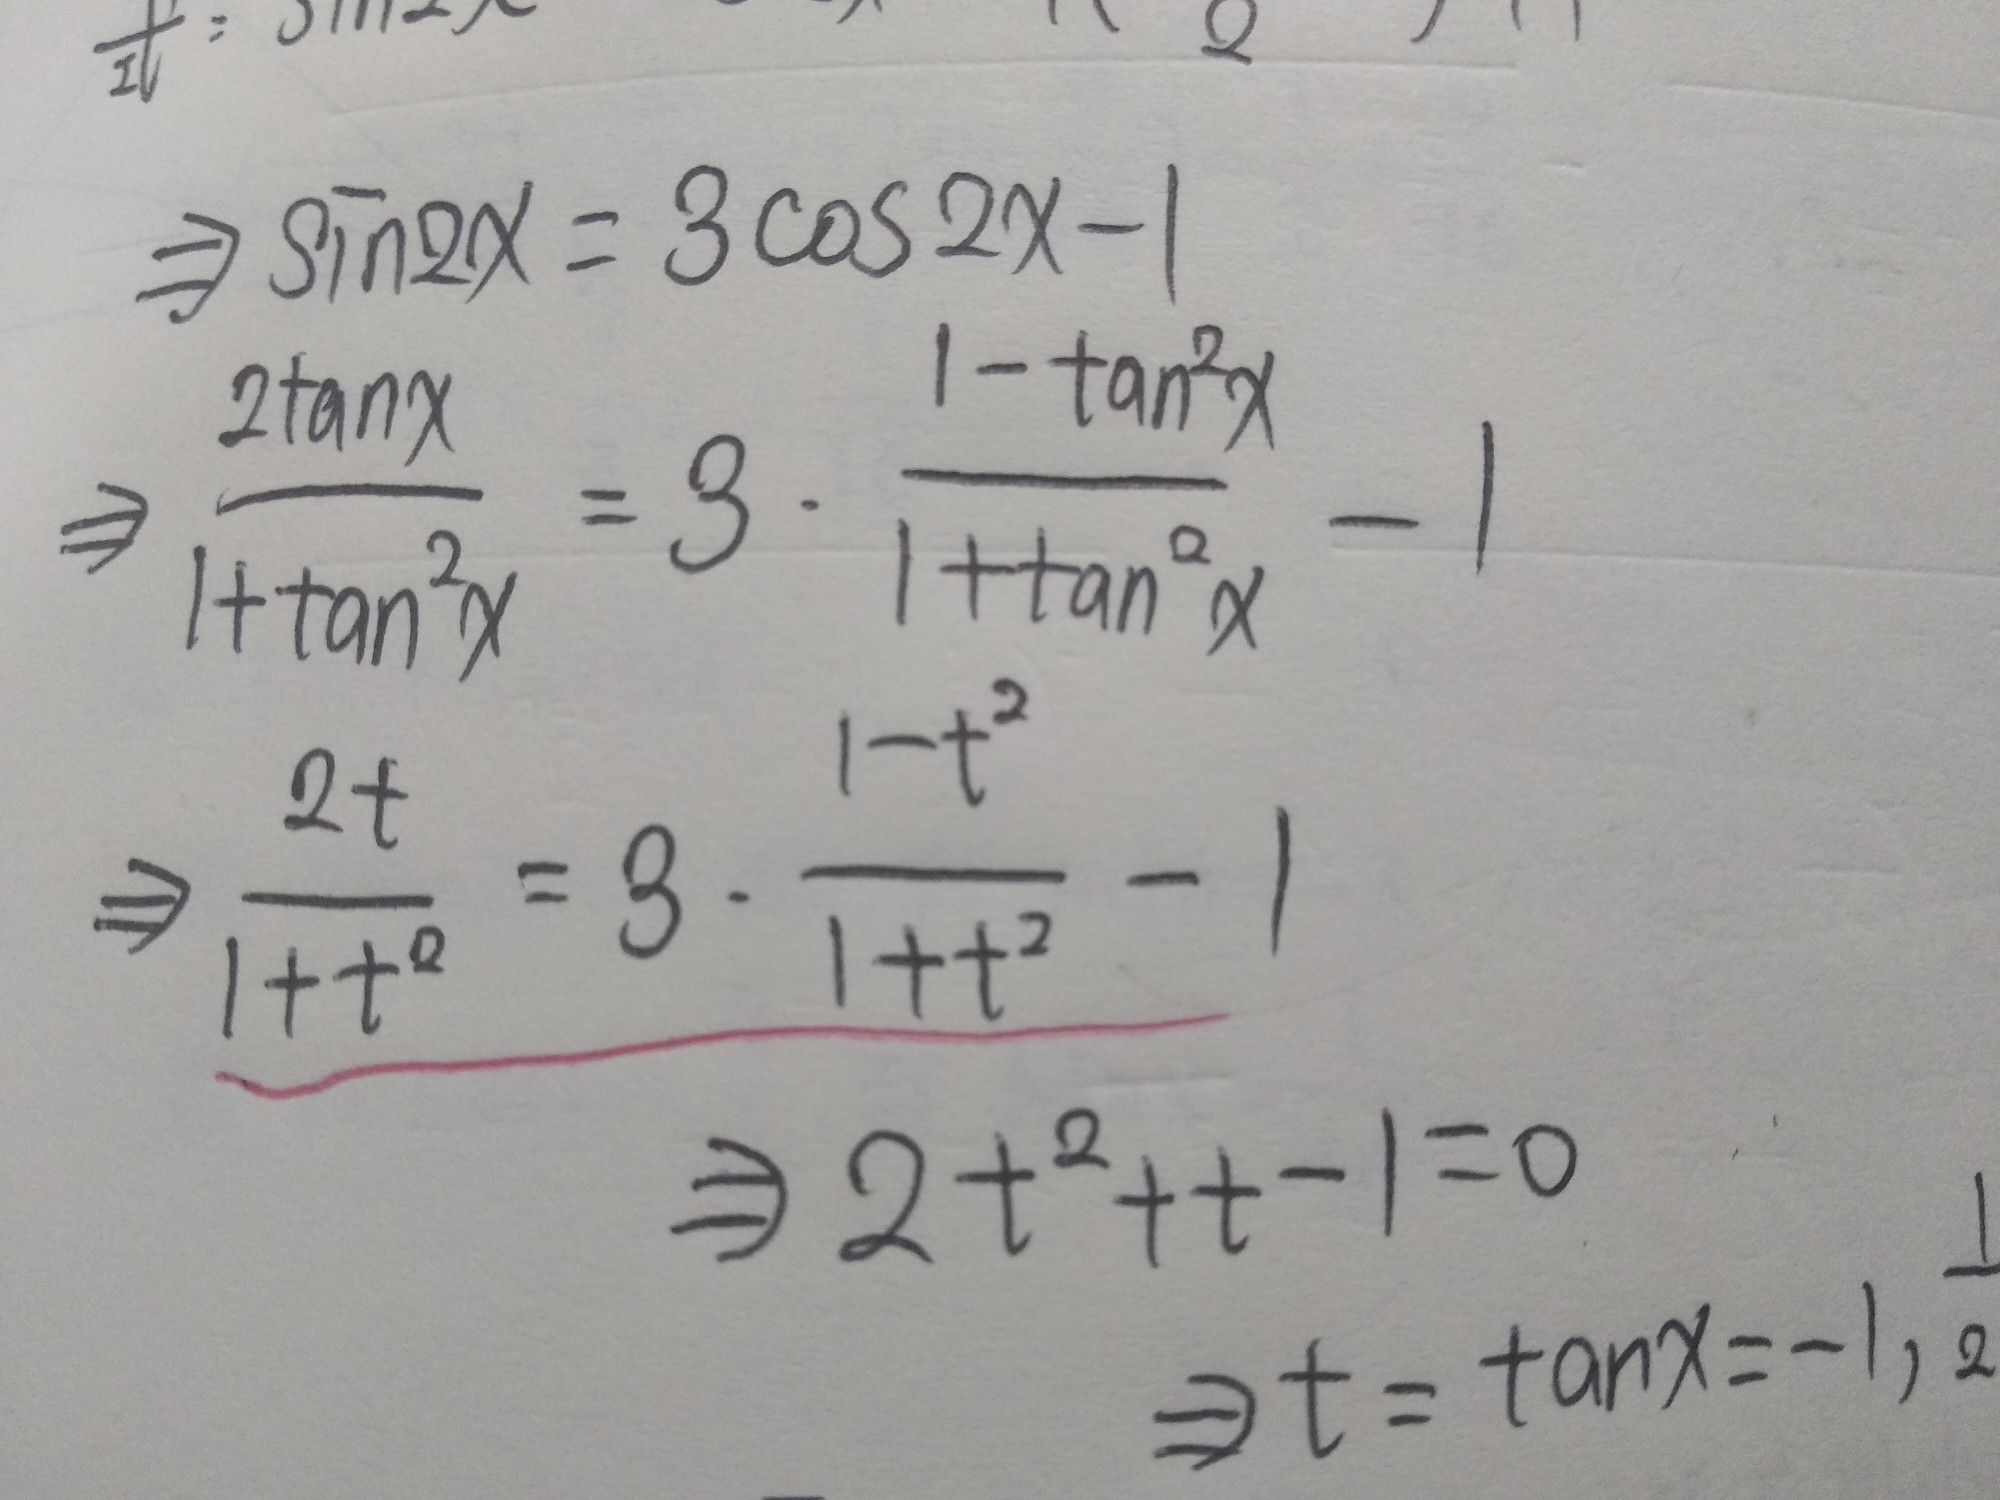 : sin2x
2
⇒ sin2x = 3cos2x-1
⇒ 2tanx / 1+tan²x = 3 · 1-tan²x / 1+tan²x - 1
⇒ 2t / 1+t² = 3 · 1-t² / 1+t² - 1
⇒ 2t²+t-1=0
⇒ t = tanx = -1, 1/2